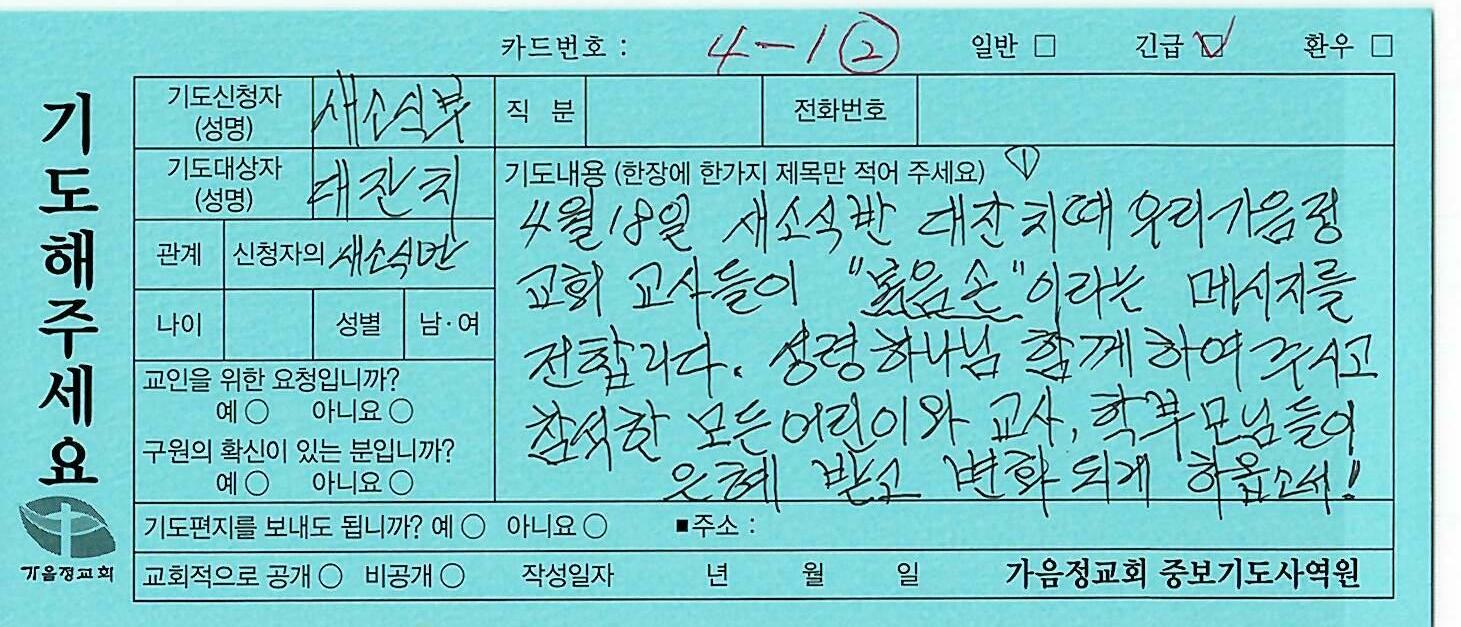 카드번호 : 4-1 ② 일반 □ 긴급 ☑ 환우 □
기도해주세요
가음정교회
기도신청자 (성명) 새소식부 직 분 전화번호
기도대상자 (성명) 대잔치
관계 신청자의 새소식반
나이 성별 남·여
교인을 위한 요청입니까?
예 ○ 아니요 ○
구원의 확신이 있는 분입니까?
예 ○ 아니요 ○
기도내용 (한장에 한가지 제목만 적어 주세요) ①
4월 18일 새소식반 대잔치때 우리가음정
교회 교사들이 " 손"이라는 메시지를
전합니다. 성령하나님 함께하여 주시고
참석한 모든어린이와 교사, 학부모님들이
은혜 받고 변화 되게 하옵소서!
기도편지를 보내도 됩니까? 예 ○ 아니요 ○ ■주소 :
교회적으로 공개 ○ 비공개 ○ 작성일자 년 월 일 가음정교회 중보기도사역원